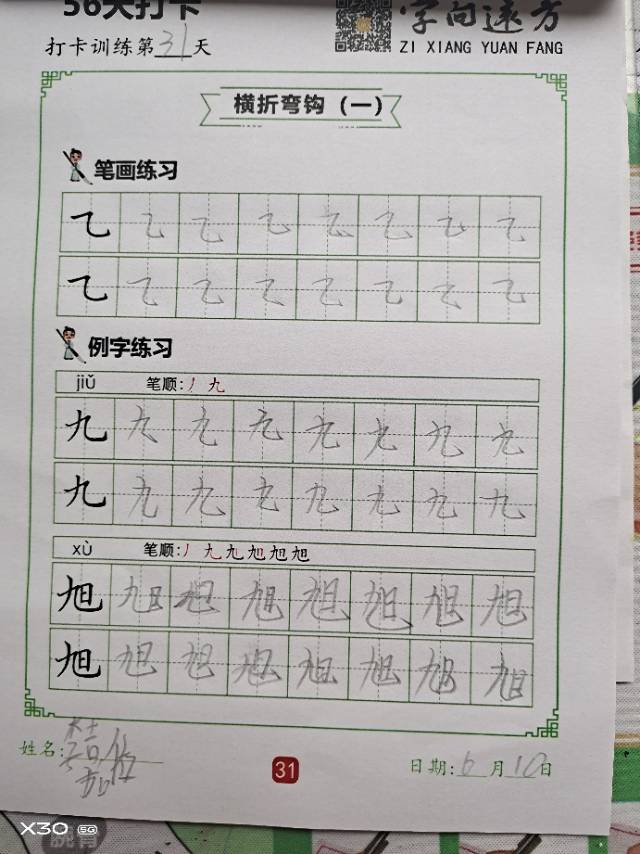 56天打卡
字向远方
打卡训练第31天
ZI XIANG YUAN FANG
横折弯钩（一）
笔画练习
乙 乙 乙 乙 乙 乙 乙 乙
乙 乙 乙 乙 乙 乙 乙 乙
例字练习
jiǔ 笔顺：丿 九
九 九 九 九 九 九 九 九
九 九 九 九 九 九 九 九
xù 笔顺：丿 九 九 旭 旭 旭
旭 旭 旭 旭 旭 旭 旭 旭
旭 旭 旭 旭 旭 旭 旭 旭
姓名：
31
日期：6月10日
X30 5G